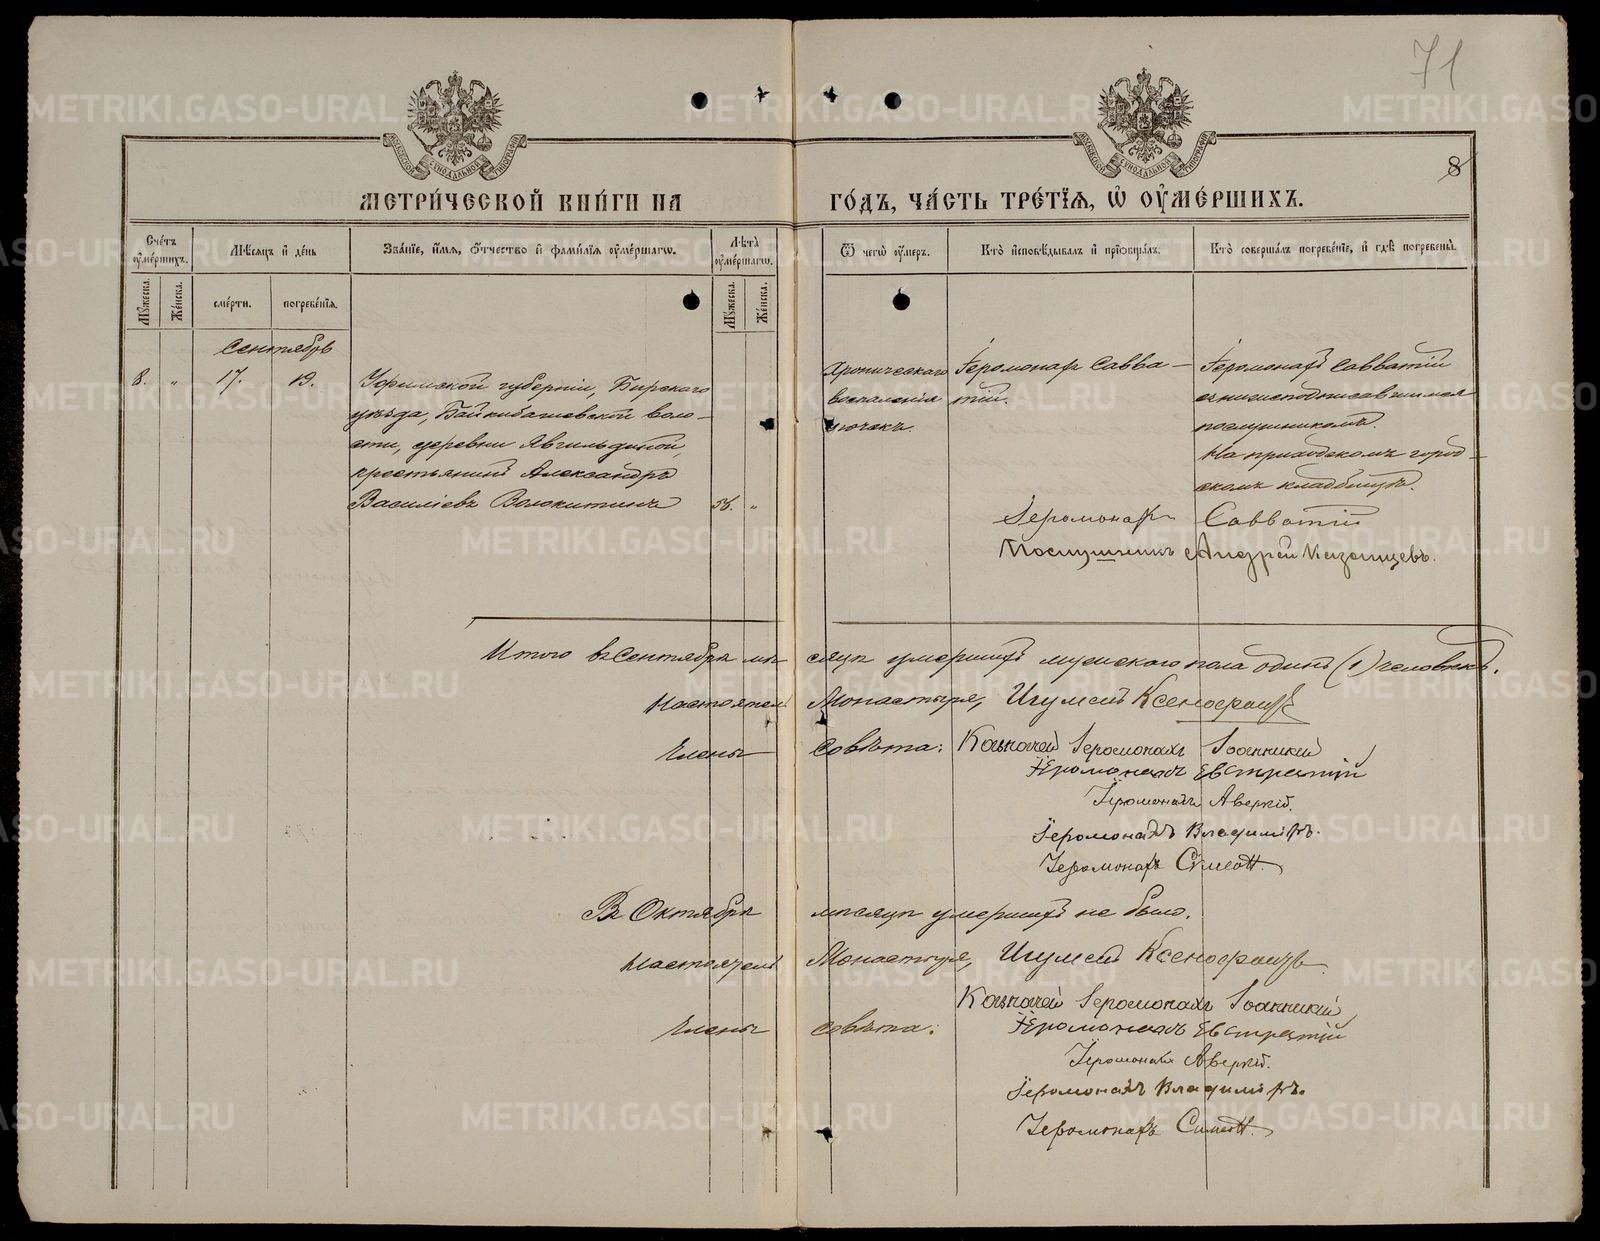 71
8
МЕТРИ́ЧЕСКОЙ КНИ́ГИ НА ГО́ДЪ, ЧА́СТЬ ТРЕ́ТЇЯ, Ѡ҆ ОУ҆МЕ́РШИХЪ.
Сче́тъ оу҆ме́ршихъ.
Мѣ́сяцъ и҆ де́нь
Зва́нїе, и҆́мя, ѻ҆́тчество и҆ фами́лїя оу҆ме́ршагѡ.
Лѣ́та оу҆ме́ршагѡ.
Ѿ чегѡ̀ оу҆́меръ.
Кто̀ и҆сповѣ́дывалъ и҆ прїѡбща́лъ.
Кто̀ соверша́лъ погребе́нїе, и҆ гдѣ̀ погребены̀.
Мꙋ́жеска.
Же́нска.
сме́рти.
погребе́нїя.
Мꙋ́жеска.
Же́нска.
Сентябрь
8. " 17. 19.
Уфимской губерніи, Бирскаго
уѣзда, Байкибашевской воло-
сти, деревни Явгильдиной,
крестьянинъ Александръ
Василіевъ Волокитинъ 56. "
хроническаго
воспаленія
почекъ
Іеромонахъ Савва-
тій.
Іеромонахъ Савватій
съ нижеподписавшимся
послушникомъ.
На приходскомъ город-
скомъ кладбищѣ.
Іеромонахъ Савватій
Послушникъ Андрей Казанцевъ.
Итого въ Сентябрѣ мѣсяцѣ умершихъ мужскаго пола одинъ (1) человѣкъ.
Настоятель Монастыря, Игуменъ Ксенофонтъ
Члены Совѣта: Казначей Іеромонахъ Іоанникій
Іеромонахъ Евстратій
Іеромонахъ Аверкій.
Іеромонахъ Владиміръ.
Іеромонахъ Симеонъ.
Въ Октябрѣ мѣсяцѣ умершихъ не было.
Настоятель Монастыря, Игуменъ Ксенофонтъ
Казначей Іеромонахъ Іоанникій
Члены совѣта: Іеромонахъ Евстратій
Іеромонахъ Аверкій.
Іеромонахъ Владиміръ.
Іеромонахъ Симеонъ.
METRIKI.GASO-URAL.RU